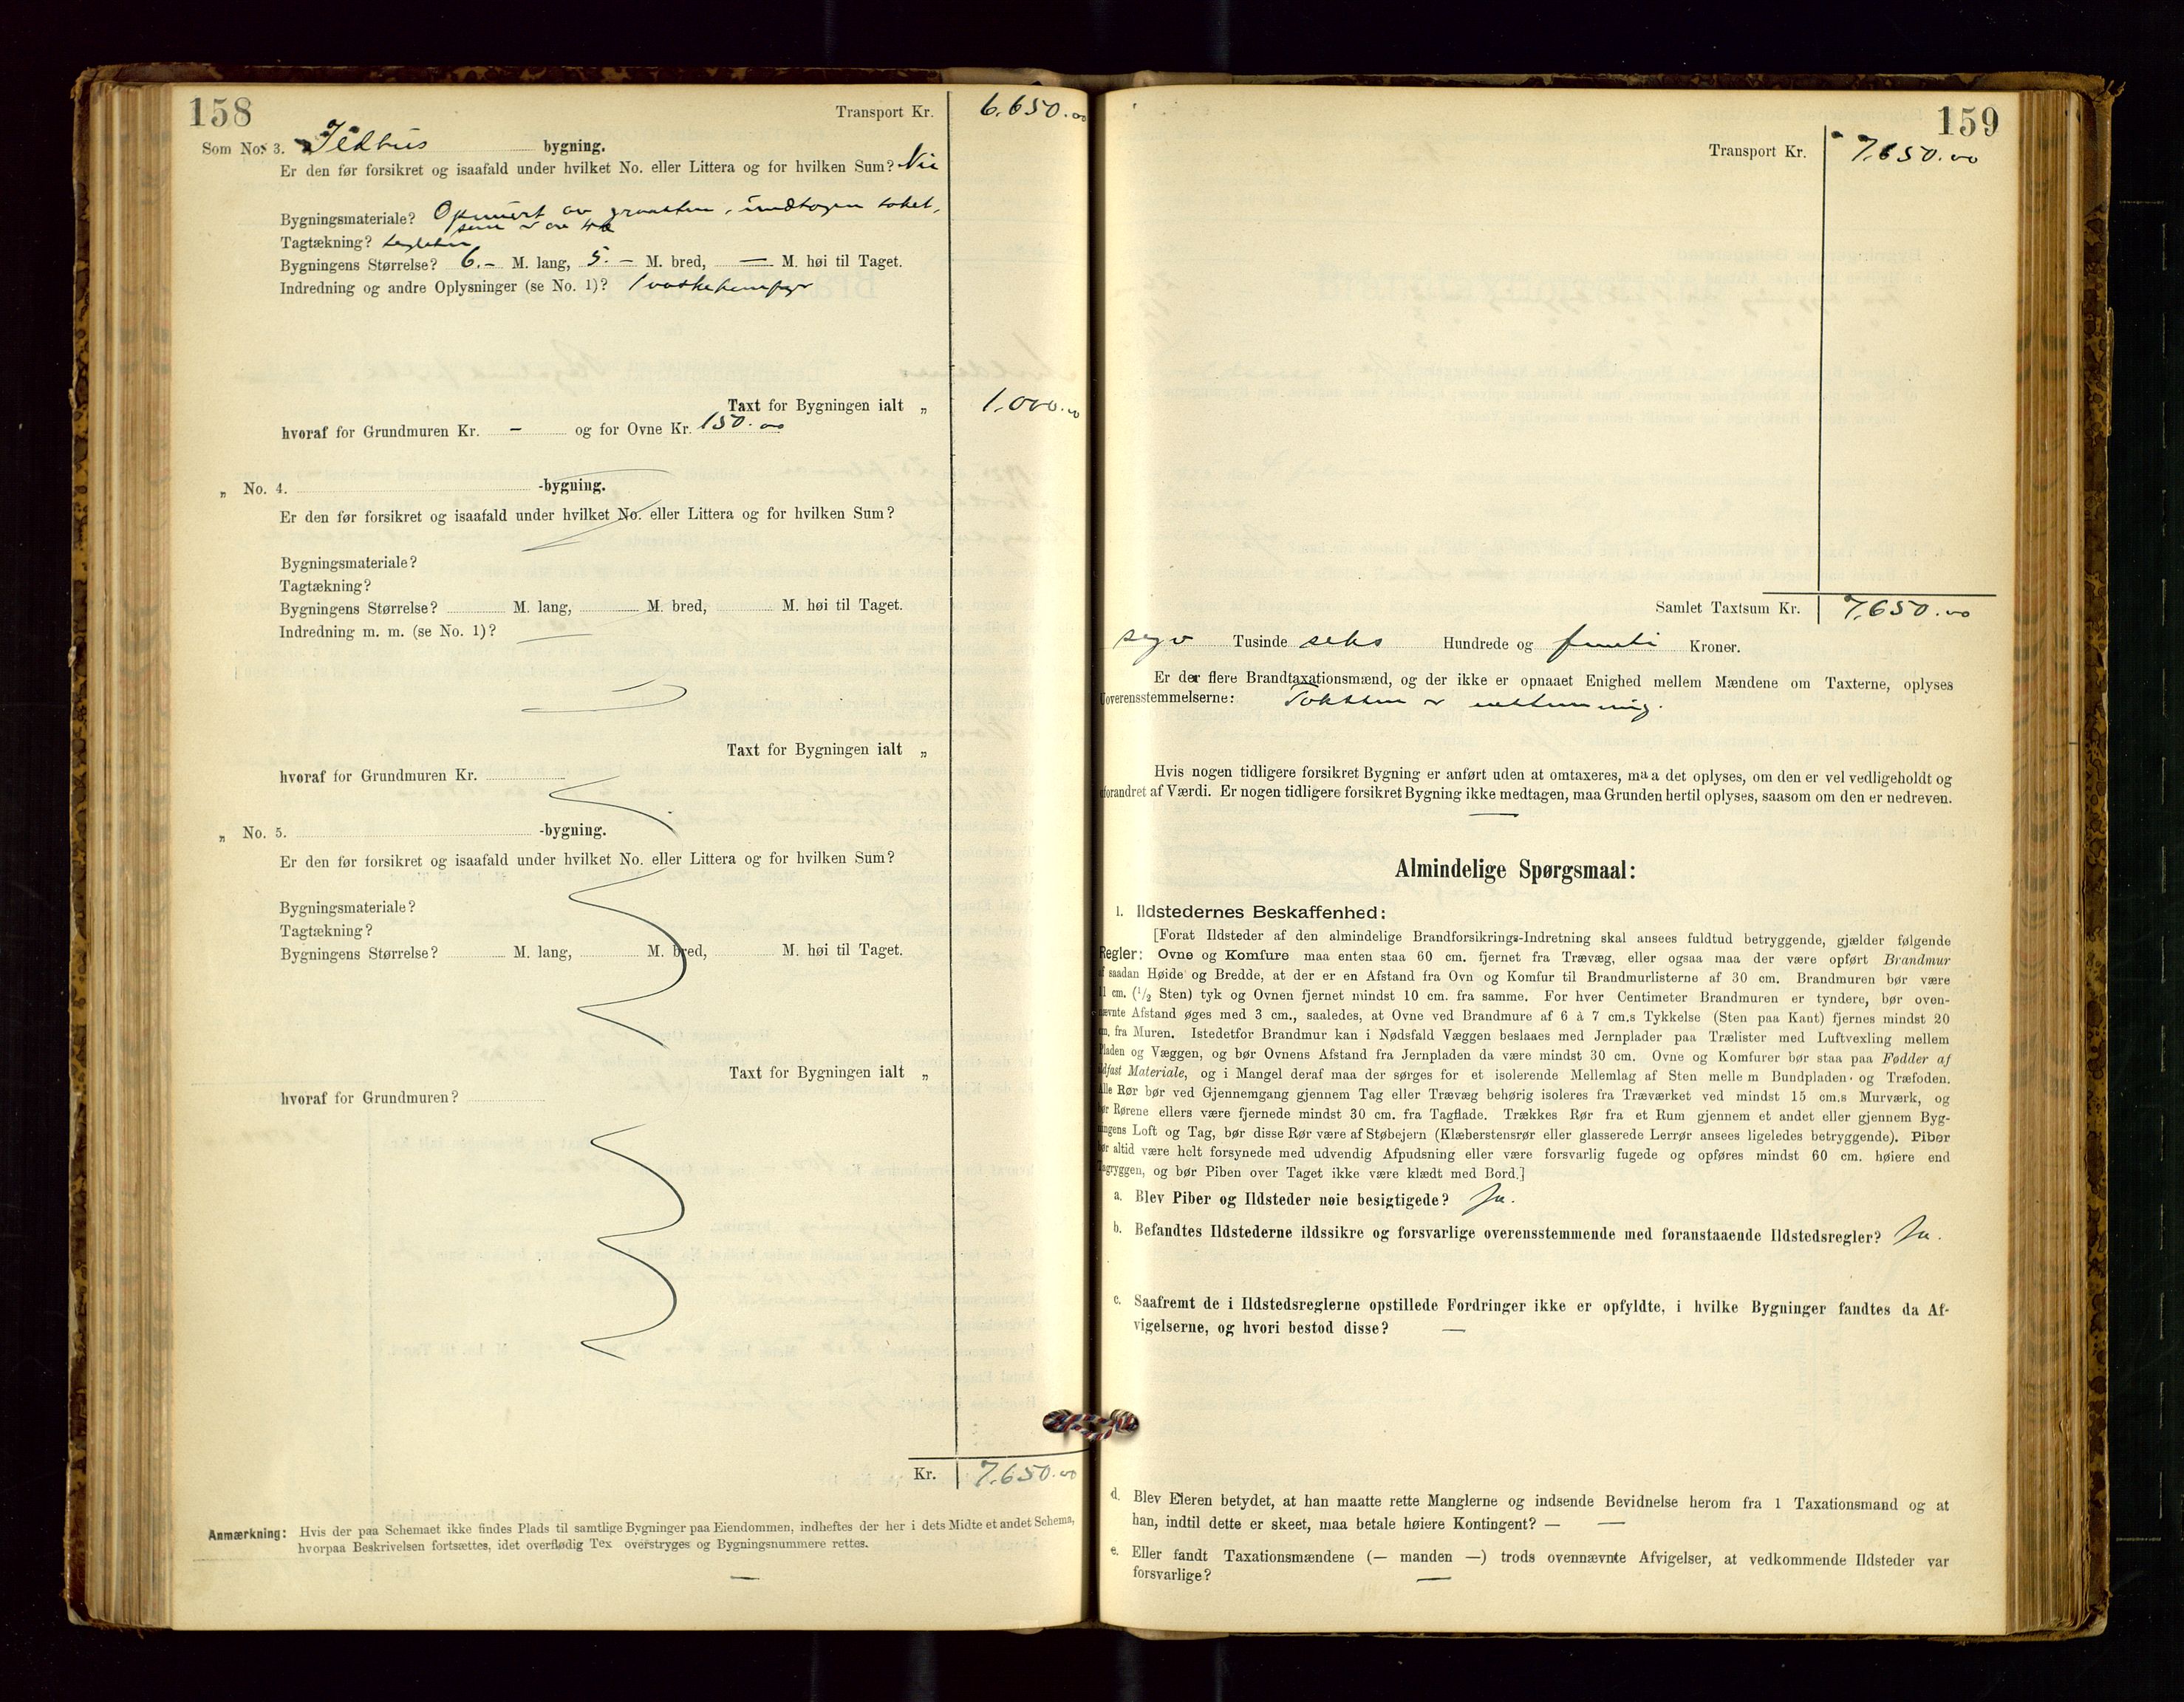 158
Transport Kr. 6.650.00
Som No. 3. Ildhus bygning.
Er den før forsikret og isaafald under hvilket No. eller Littera og for hvilken Sum? Nei
Bygningsmateriale? Opmuret av graasten, undtagen taket,
som er av træ
Tagtækning? taglsten
Bygningens Størrelse? 6.– M. lang, 5.– M. bred, — M. høi til Taget.
Indredning og andre Oplysninger (se No. 1)? 1
Taxt for Bygningen ialt „ 1.000.00
hvoraf for Grundmuren Kr. – og for Ovne Kr. 150.00
„ No. 4. -bygning.
Er den før forsikret og isaafald under hvilket No. eller Littera og for hvilken Sum?
Bygningsmateriale?
Tagtækning?
Bygningens Størrelse? M. lang, M. bred, M. høi til Taget.
Indredning m. m. (se No. 1)?
Taxt for Bygningen ialt „
hvoraf for Grundmuren Kr.
„ No. 5. -bygning.
Er den før forsikret og isaafald under hvilket No. eller Littera og for hvilken Sum?
Bygningsmateriale?
Tagtækning?
Bygningens Størrelse? M. lang, M. bred, M. høi til Taget.
Taxt for Bygningen ialt „
hvoraf for Grundmuren?
Kr. 7.650.00
Anmærkning: Hvis der paa Schemaet ikke findes Plads til samtlige Bygninger paa Eiendommen, indheftes der her i dets Midte et andet Schema,
hvorpaa Beskrivelsen fortsættes, idet overflødig Tex overstryges og Bygningsnummere rettes.
—
159
Transport Kr. 7.650.00
Samlet Taxtsum Kr. 7.650.00
syv Tusinde seks Hundrede og femti Kroner.
Er der flere Brandtaxationsmænd, og der ikke er opnaaet Enighed mellem Mændene om Taxterne, oplyses
Uoverensstemmelserne: Taksten er enstemmig.
Hvis nogen tidligere forsikret Bygning er anført uden at omtaxeres, maa det oplyses, om den er vel vedligeholdt og
uforandret af Værdi. Er nogen tidligere forsikret Bygning ikke medtagen, maa Grunden hertil oplyses, saasom om den er nedreven.
—
Almindelige Spørgsmaal:
1. Ildstedernes Beskaffenhed:
[Forat Ildsteder af den almindelige Brandforsikrings-Indretning skal ansees fuldtud betryggende, gjælder følgende
Regler: Ovne og Komfure maa enten staa 60 cm. fjernet fra Trævæg, eller ogsaa maa der være opført Brandmur
af saadan Høide og Bredde, at der er en Afstand fra Ovn og Komfur til Brandmurlisterne af 30 cm. Brandmuren bør være
11 cm. (1/2 Sten) tyk og Ovnen fjernet mindst 10 cm. fra samme. For hver Centimeter Brandmuren er tyndere, bør oven-
nævnte Afstand øges med 3 cm., saaledes, at Ovne ved Brandmure af 6 à 7 cm.s Tykkelse (Sten paa Kant) fjernes mindst 20
cm. fra Muren. Istedetfor Brandmur kan i Nødsfald Væggen beslaaes med Jernplader paa Trælister med Luftvexling mellem
Pladen og Væggen, og bør Ovnens Afstand fra Jernpladen da være mindst 30 cm. Ovne og Komfurer bør staa paa Fødder af
ildfast Materiale, og i Mangel deraf maa der sørges for et isolerende Mellemlag af Sten mellem Bundpladen og Træfoden.
Alle Rør bør ved Gjennemgang gjennem Tag eller Trævæg behørig isoleres fra Træværket ved mindst 15 cm.s Murværk, og
bør Rørene ellers være fjernede mindst 30 cm. fra Tagflade. Trækkes Rør fra et Rum gjennem et andet eller gjennem Byg-
ningens Loft og Tag, bør disse Rør være af Støbejern (Klæberstensrør eller glasserede Lerrør ansees ligeledes betryggende). Piber
bør altid være helt forsynede med udvendig Afpudsning eller være forsvarlig fugede og opføres mindst 60 cm. høiere end
Tagryggen, og bør Piben over Taget ikke være klædt med Bord.]
a. Blev Piber og Ildsteder nøie besigtigede? Ja.
b. Befandtes Ildstederne ildssikre og forsvarlige overensstemmende med foranstaaende Ildstedsregler? Ja.
c. Saafremt de i Ildstedsreglerne opstillede Fordringer ikke er opfyldte, i hvilke Bygninger fandtes da Af-
vigelserne, og hvori bestod disse? —
d. Blev Eieren betydet, at han maatte rette Manglerne og indsende Bevidnelse herom fra 1 Taxationsmand og at
han, indtil dette er skeet, maa betale høiere Kontingent? — —
e. Eller fandt Taxationsmændene (— manden —) trods ovennævnte Afvigelser, at vedkommende Ildsteder var
forsvarlige? —